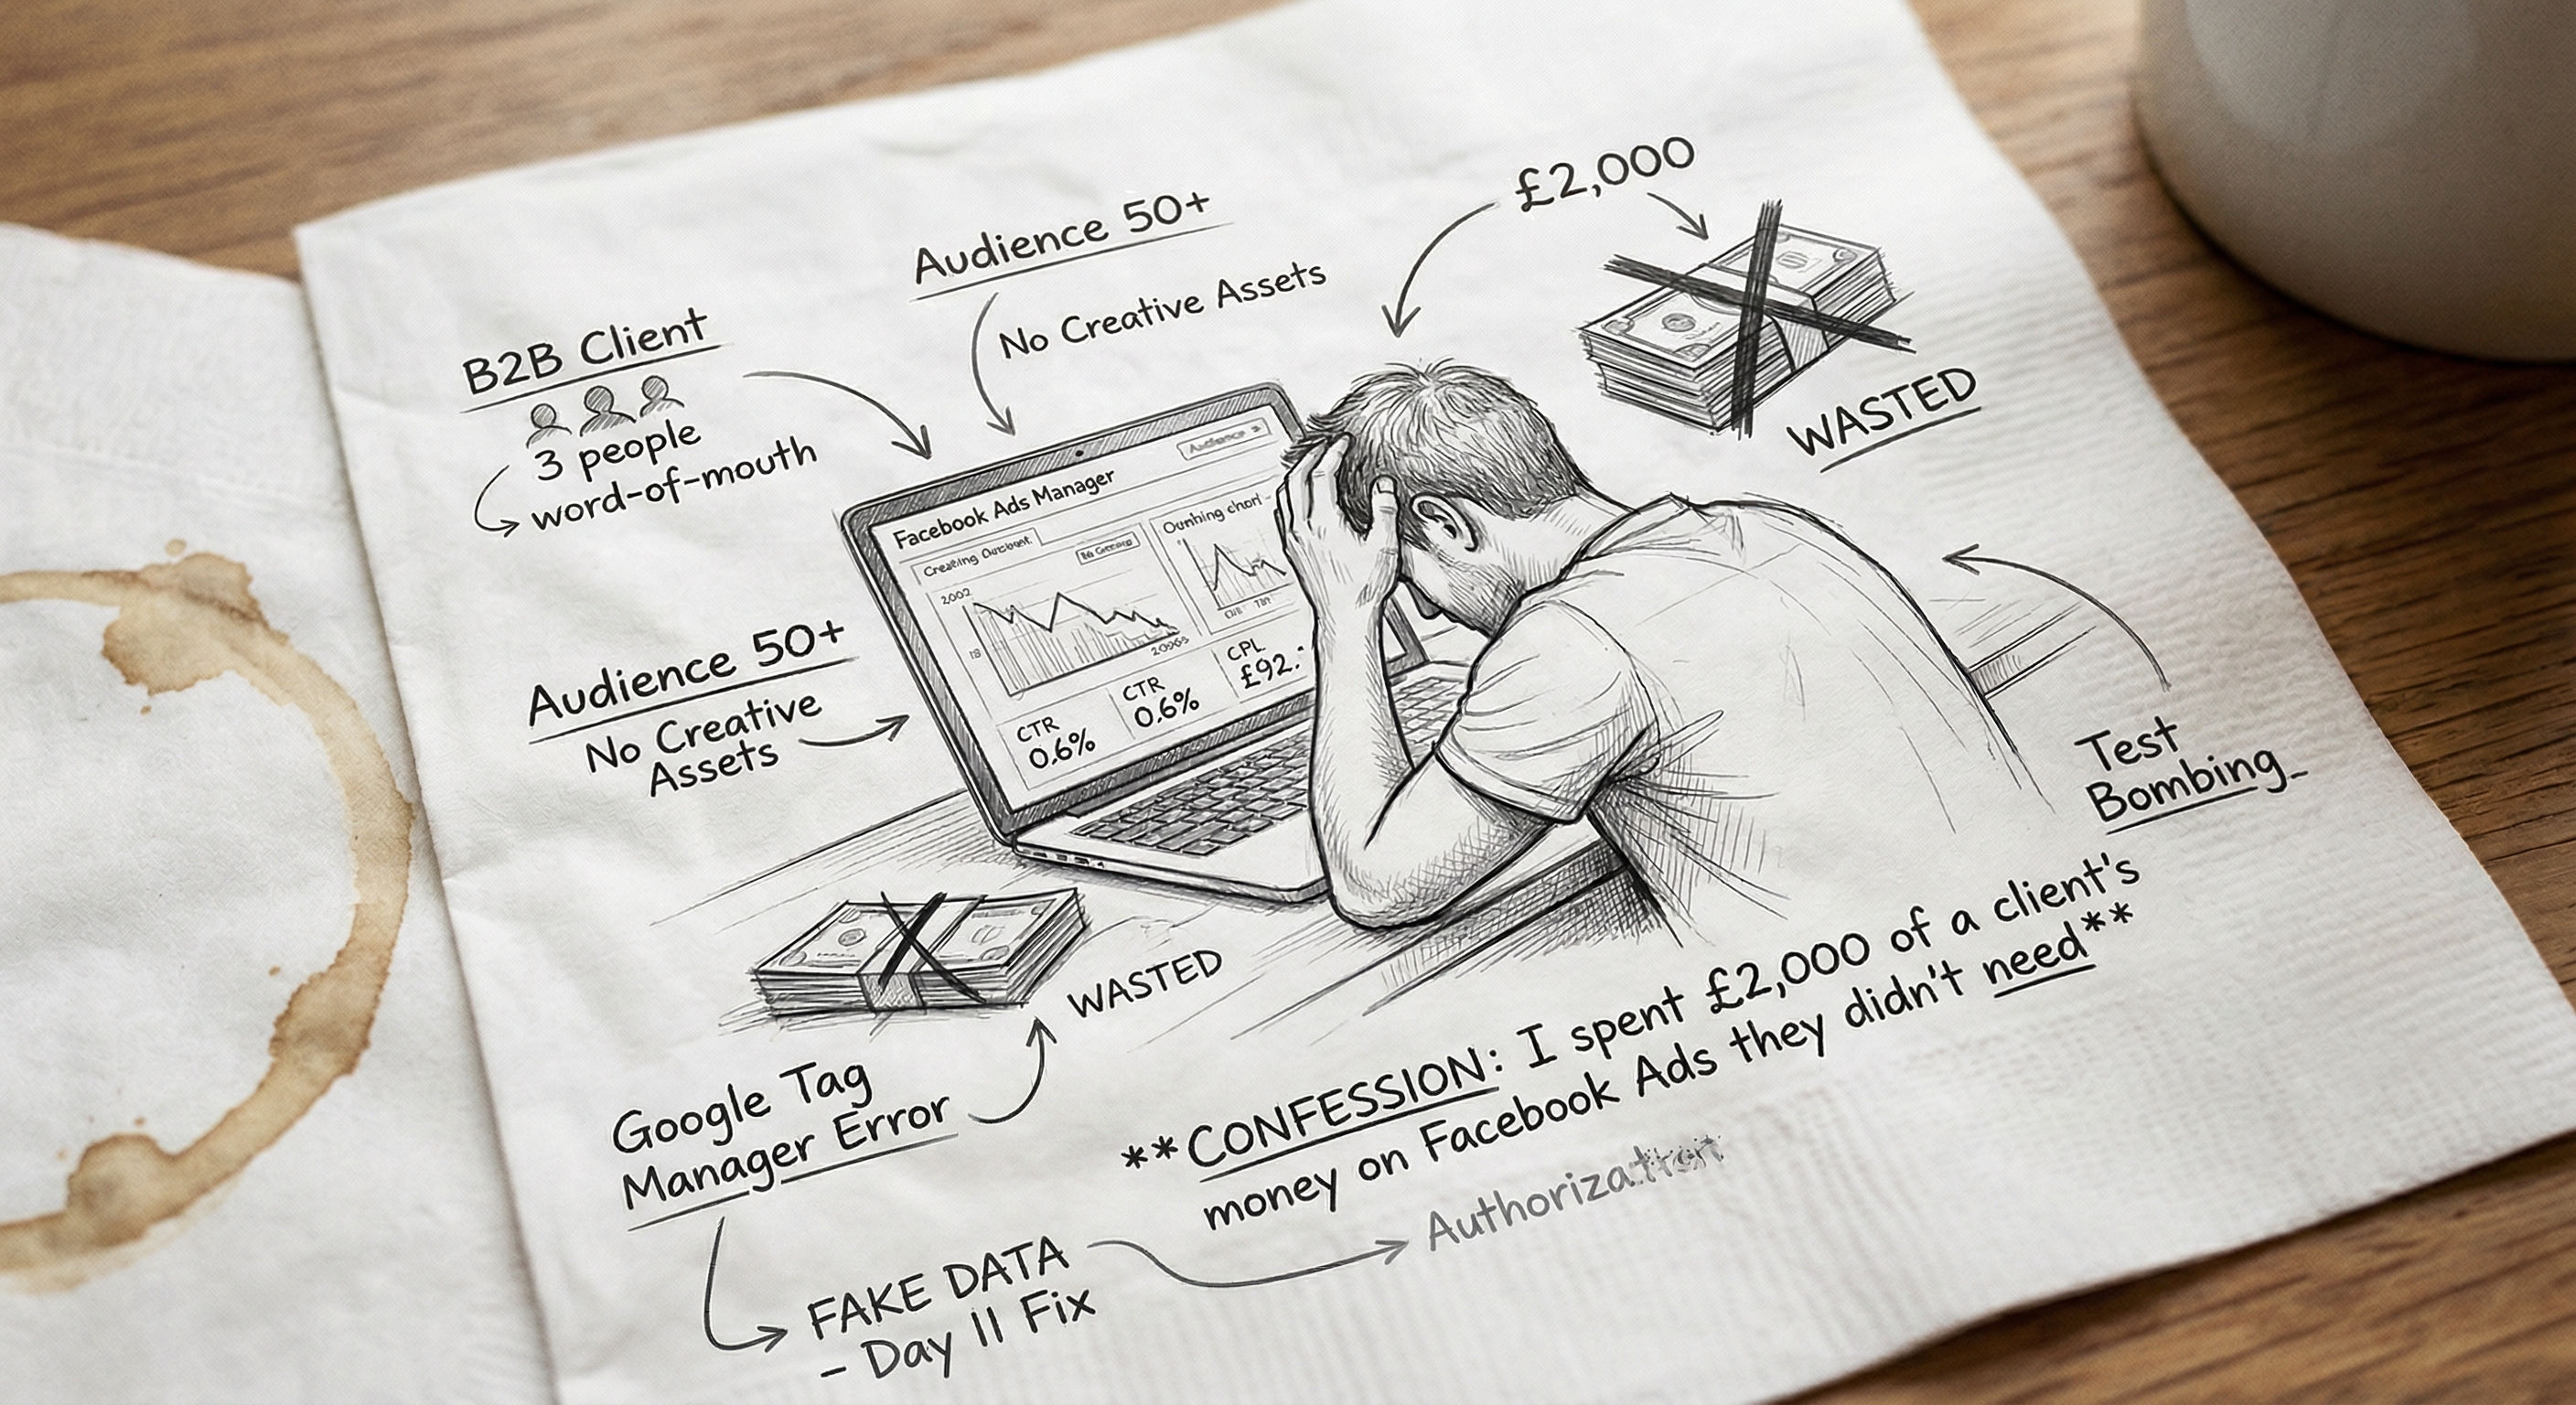 £2,000
Audience 50+
No Creative Assets
B2B Client
3 people
word-of-mouth
WASTED
Facebook Ads Manager
Audience
Creating
2,002
CTR
0.6%
CTR
0.6%
CPL
£92.
Audience 50+
No Creative
Assets
Test
Bombing_
WASTED
Google Tag
Manager Error
**CONFESSION: I spent £2,000 of a client's
money on Facebook Ads they didn't need**
FAKE DATA
- Day 11 Fix